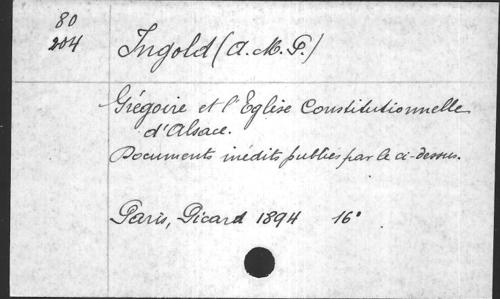 80
204
Ingold (A. M. P.)
Grégoire et l'Eglise Constitutionnelle
d'Alsace.
Documents inédits publiés par le ci-dessus.
Paris, Picard 1894 16°